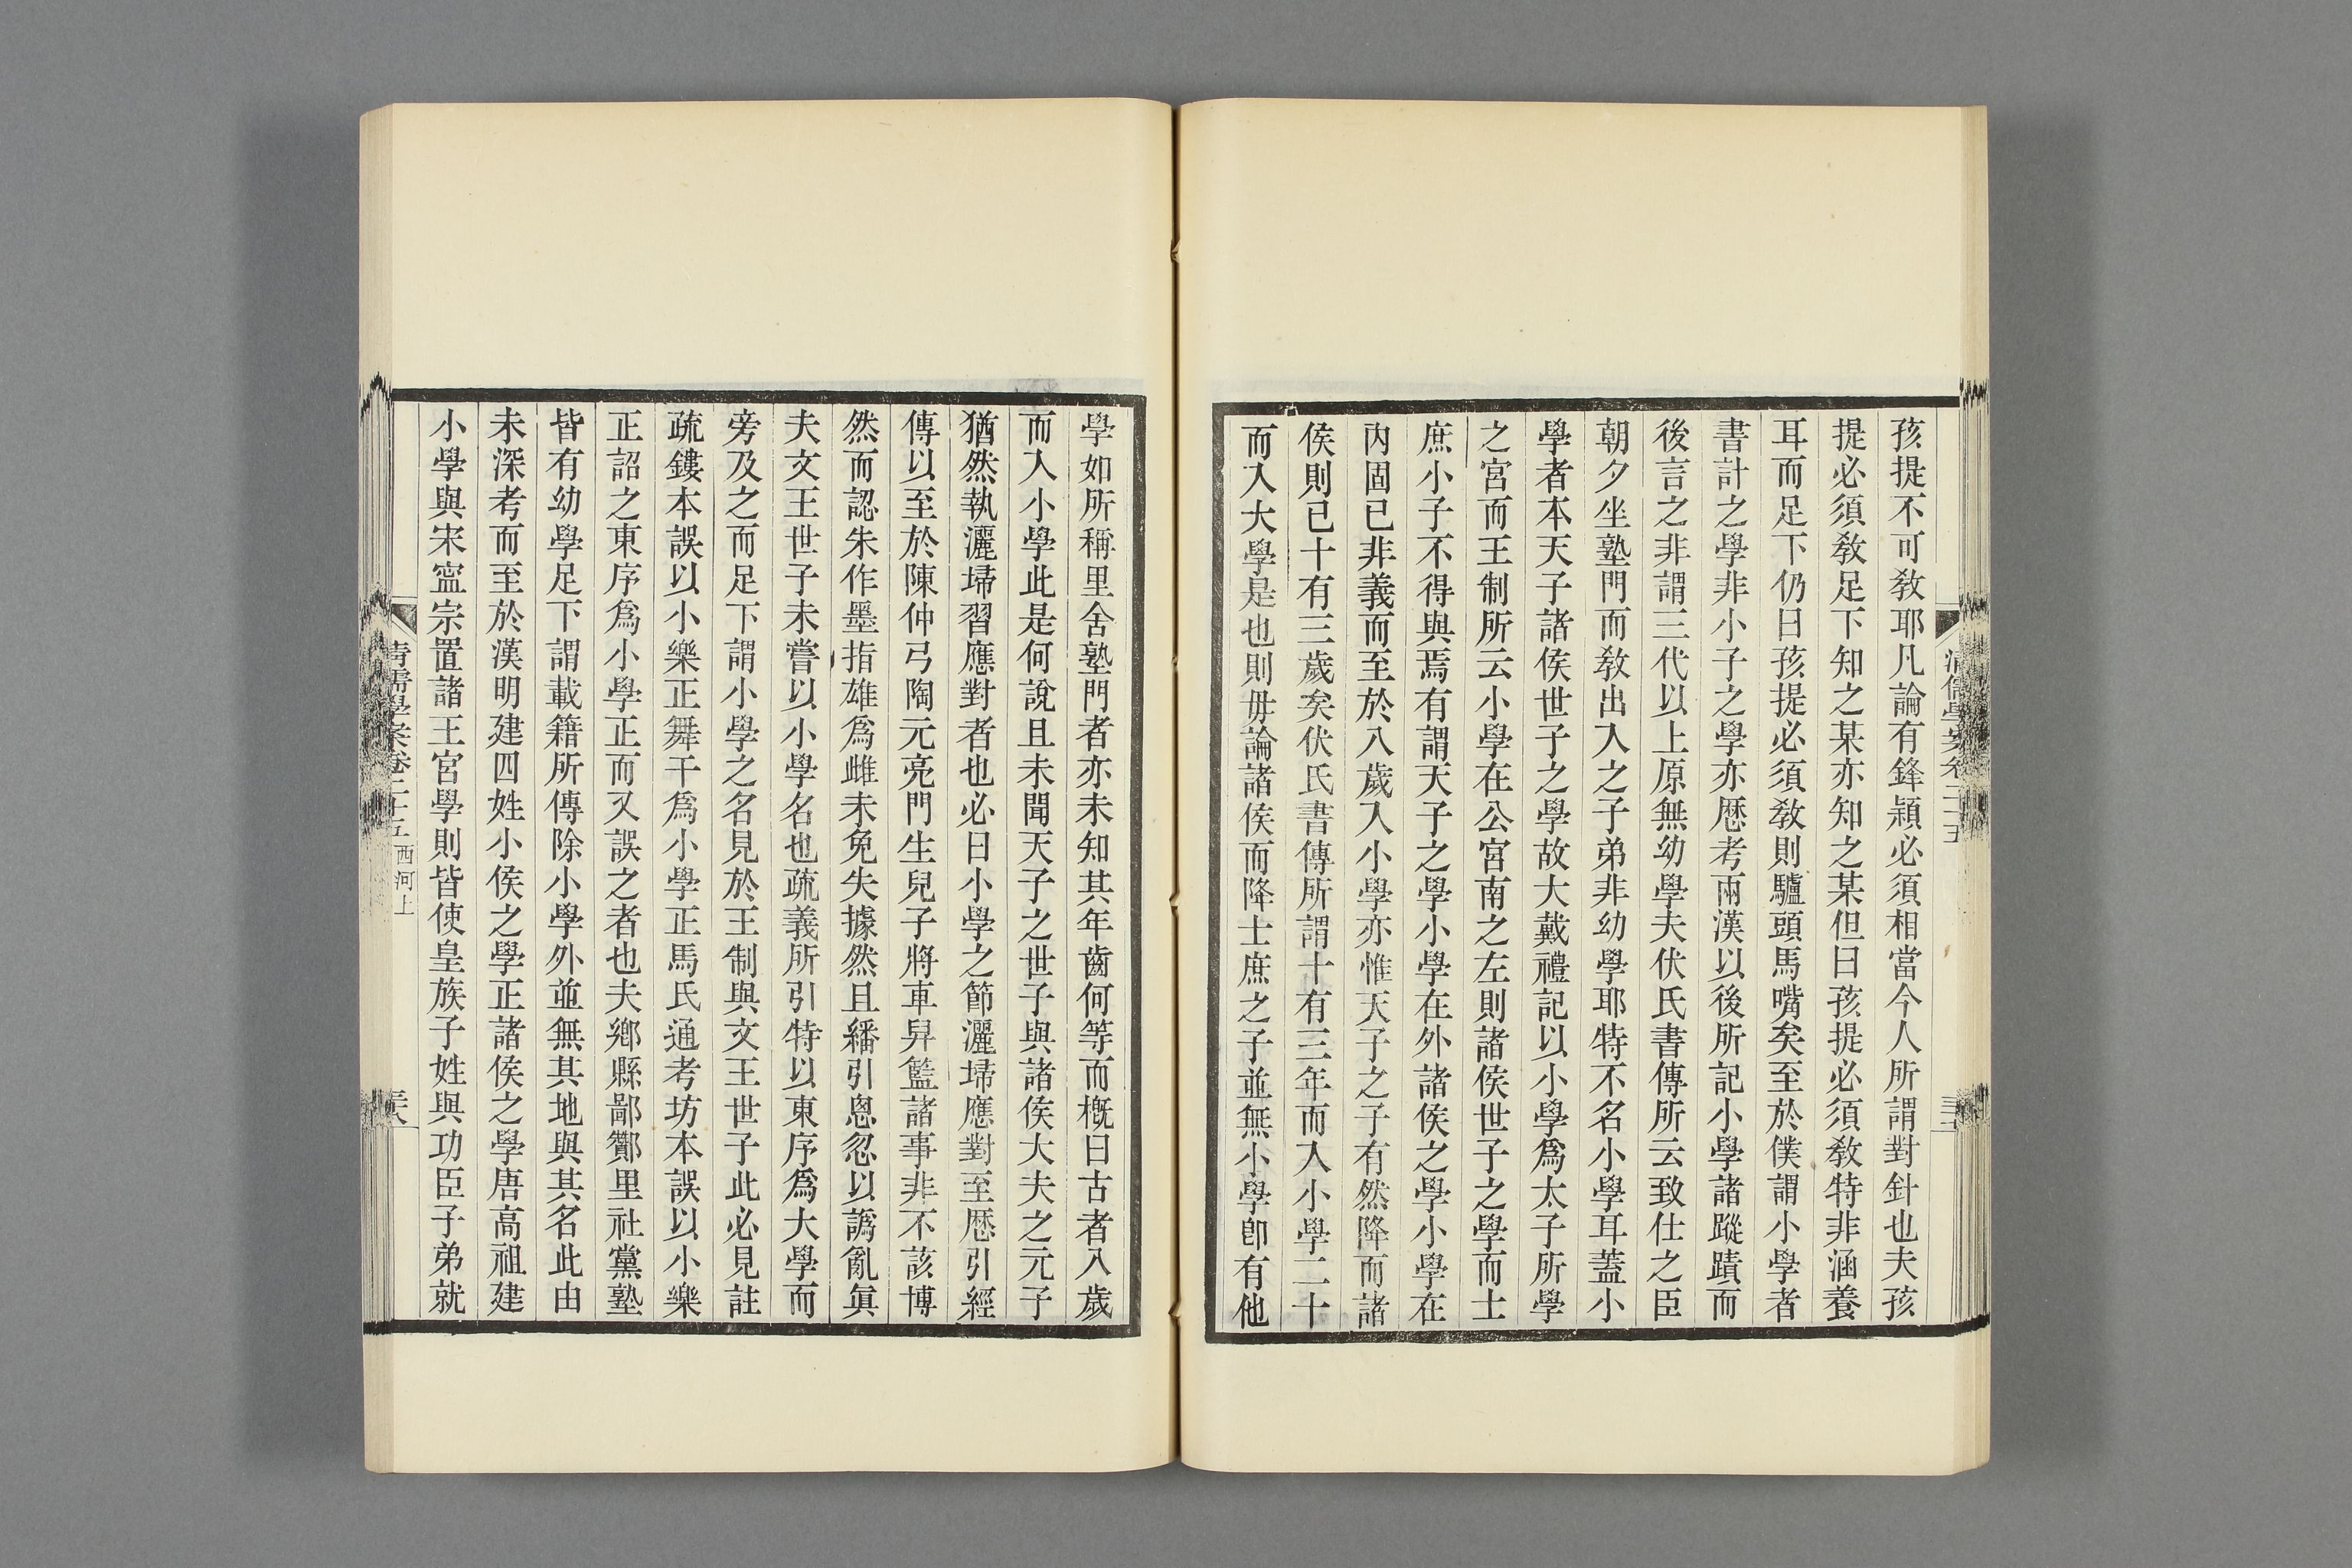 孩提不可敎耶凡論有鋒穎必須相當今人所謂對針也夫孩
提必須敎足下知之某亦知之某但曰孩提必須敎特非涵養
耳而足下仍曰孩提必須敎則驢頭馬嘴矣至於僕謂小學者
書計之學非小子之學亦歷考兩漢以後所記小學諸蹤蹟而
後言之非謂三代以上原無幼學夫伏氏書傳所云致仕之臣
朝夕坐塾門而敎出入之子弟非幼學耶特不名小學耳蓋小
學者本天子諸侯世子之學故大戴禮記以小學爲太子所學
之宮而王制所云小學在公宮南之左則諸侯世子之學而士
庶小子不得與焉有謂天子之學小學在外諸侯之學小學在
內固已非義而至於八歲入小學亦惟天子之子有然降而諸
侯則已十有三歲矣伏氏書傳所謂十有三年而入小學二十
而入大學是也則毋論諸侯而降士庶之子並無小學卽有他
學如所稱里舍塾門者亦未知其年齒何等而槪曰古者八歲
而入小學此是何說且未聞天子之世子與諸侯大夫之元子
猶然執灑埽習應對者也必曰小學之節灑埽應對至歷引經
傳以至於陳仲弓陶元亮門生兒子將車舁籃諸事非不該博
然而認朱作墨指雄爲雌未免失據然且繙引恩忽以譌亂眞
夫文王世子未嘗以小學名也疏義所引特以東序爲大學而
旁及之而足下謂小學之名見於王制與文王世子此必見註
疏鏤本誤以小樂正舞干爲小學正馬氏通考坊本誤以小樂
正詔之東序爲小學正而又誤之者也夫鄉縣鄙酇里社黨塾
皆有幼學足下謂載籍所傳除小學外並無其地與其名此由
未深考而至於漢明建四姓小侯之學正諸侯之學唐高祖建
小學與宋寧宗置諸王宮學則皆使皇族子姓與功臣子弟就
清儒學案卷二十五 西河上